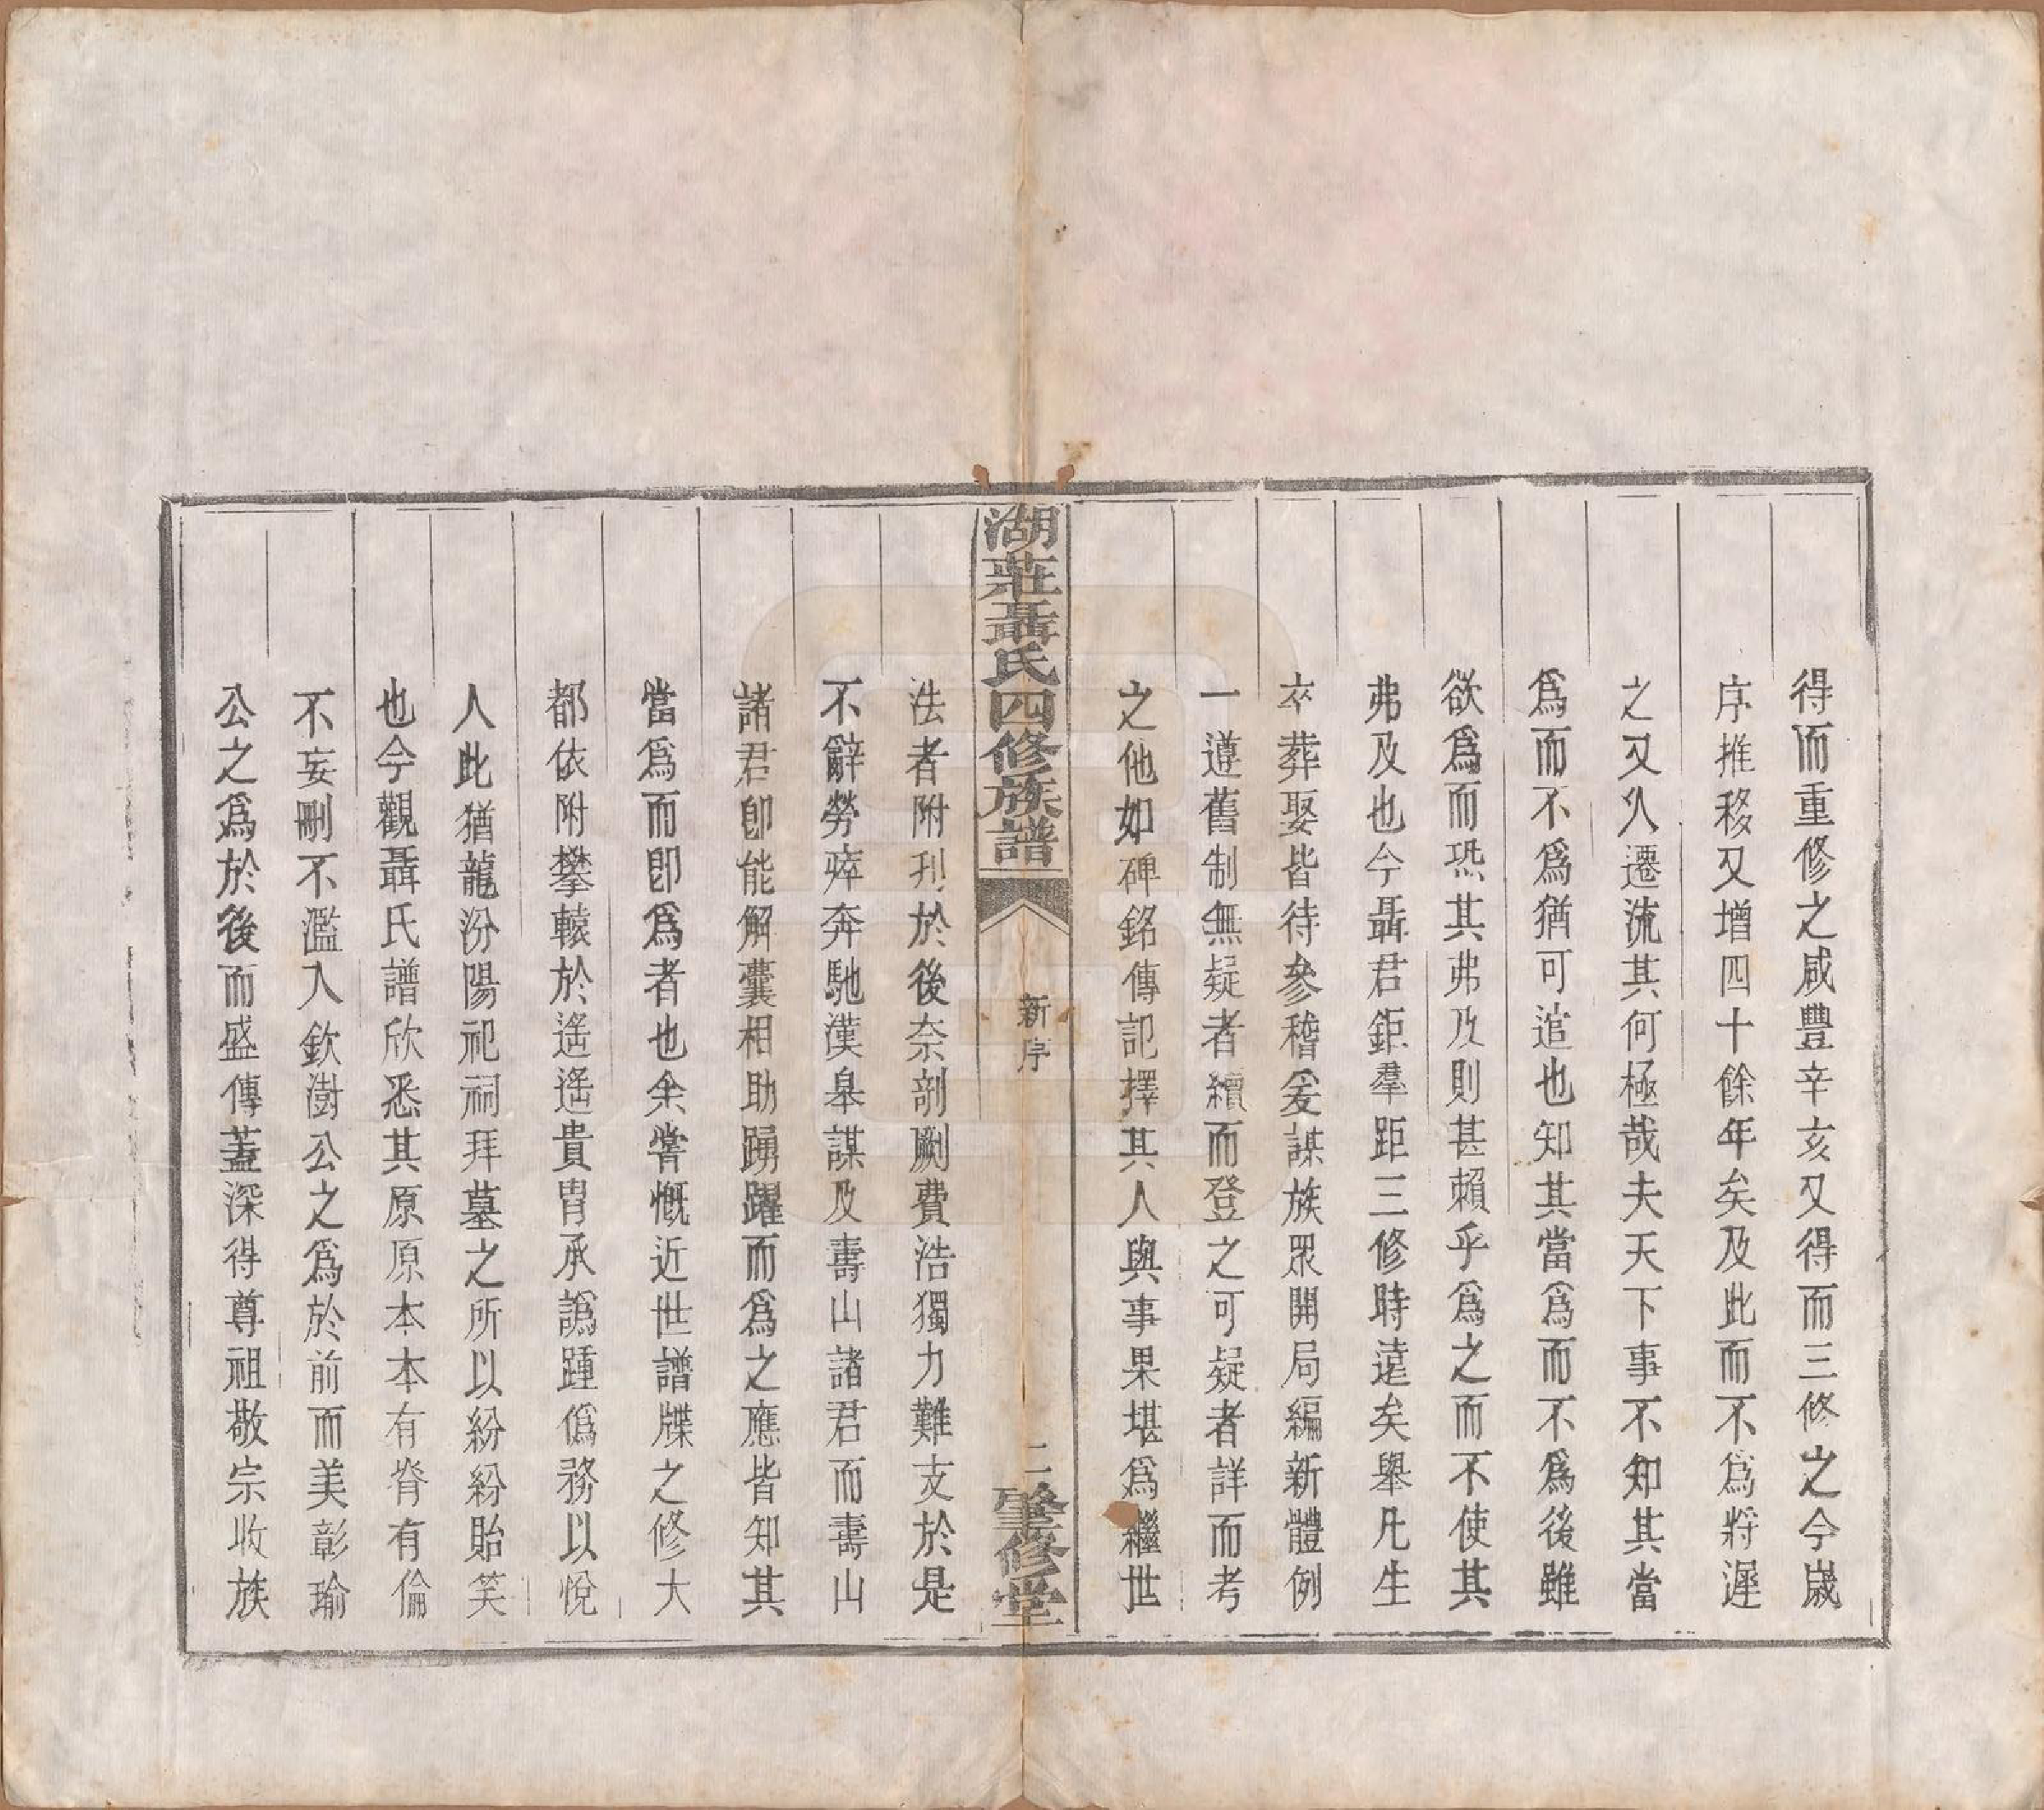 得而重修之咸豐辛亥又得而三修之今歲
序推移又增四十餘年矣及此而不爲將遲
之又久遷流其何極哉夫天下事不知其當
爲而不爲猶可逭也知其當爲而不爲後雖
欲爲而恐其弗及則甚賴乎爲之而不使其
弗及也今聶君鉅羣距三修時遠矣舉凡生
卒葬娶皆待參稽爰謀族眾開局編新體例
一遵舊制無疑者續而登之可疑者詳而考
之他如碑銘傳記擇其人與事果堪爲繼世
湖莊聶氏四修族譜
新序
二
肇修堂
法者附刋於後奈剞劂費浩獨力難支於是
不辭勞瘁奔馳漢皋謀及壽山諸君而壽山
諸君卽能解囊相助踴躍而爲之應皆知其
當爲而卽爲者也余嘗慨近世譜牒之修大
都依附攀轅於遙遙貴胄承譌踵僞務以悅
人此猶龍汾陽祀祠拜墓之所以紛紛貽笑
也今觀聶氏譜欣悉其原原本本有脊有倫
不妄刪不濫入欽澍公之爲於前而美彰瑜
公之爲於後而盛傳蓋深得尊祖敬宗收族